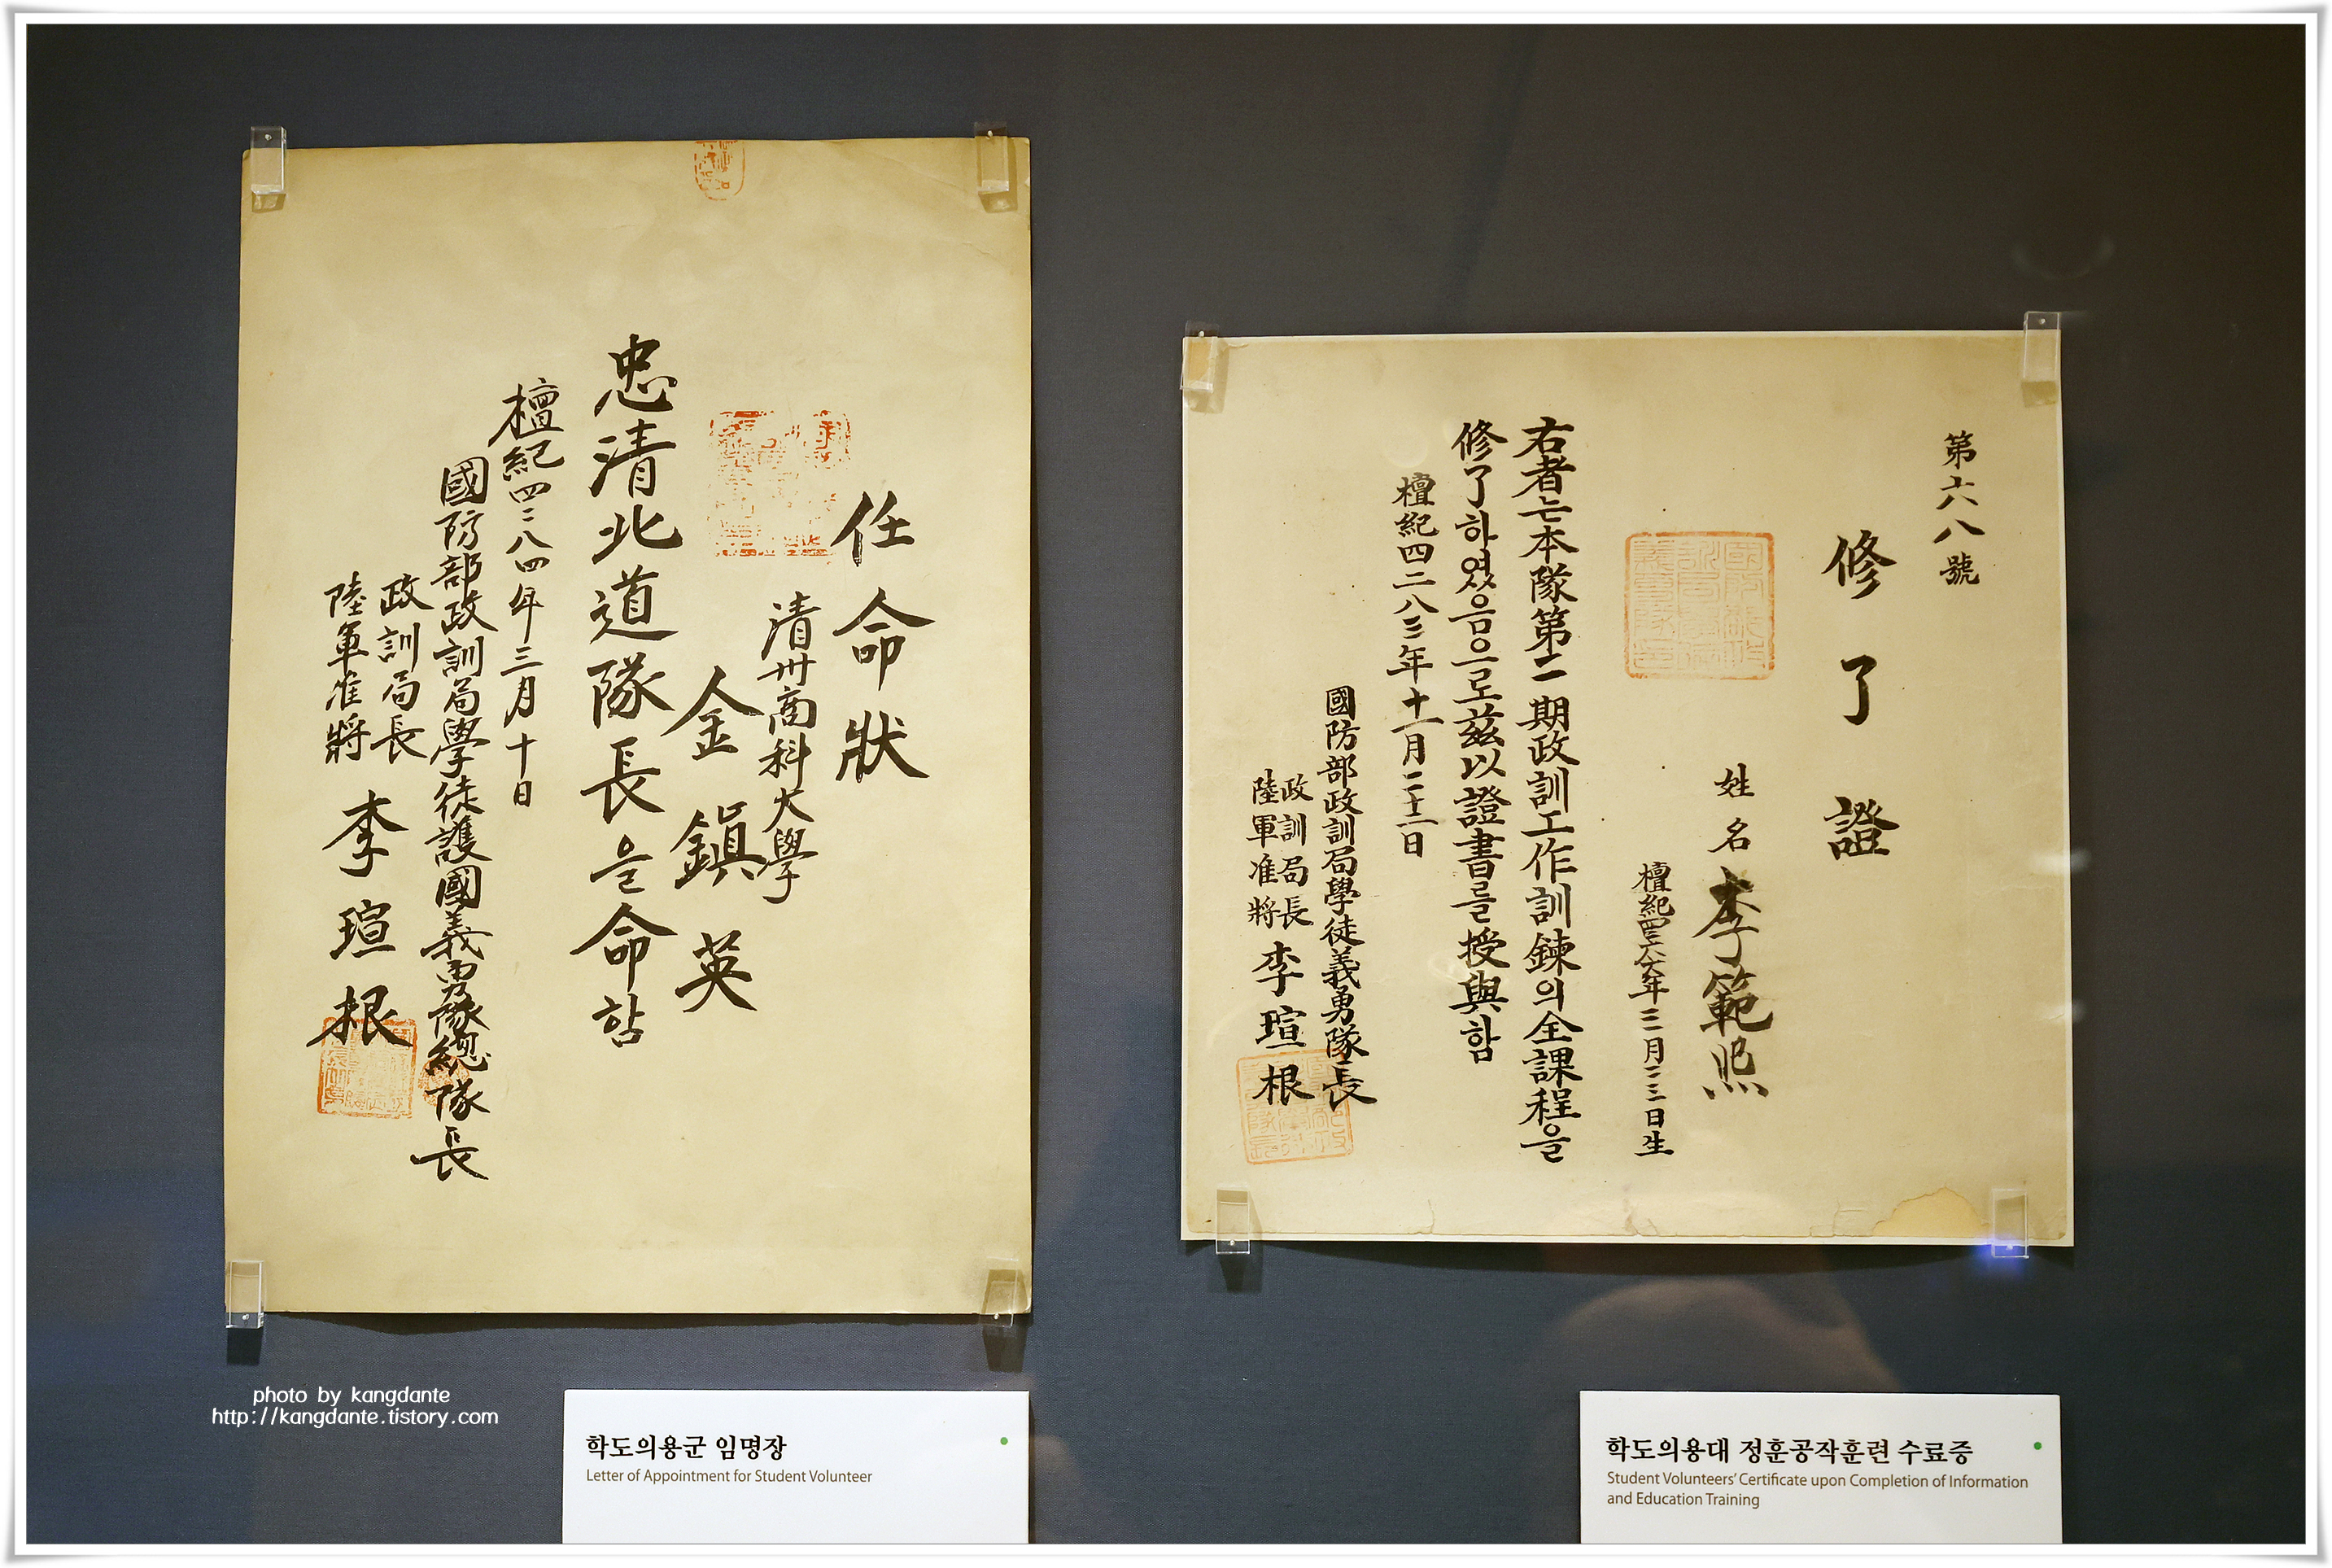 任命狀
清州商科大學
金鎭英
忠清北道隊長을命함
檀紀四二八四年三月十日
國防部政訓局學徒護國義勇隊總隊長
政訓局長
陸軍准將 李瑄根
第六八號
修了證
姓名 李範熙
年三月二三日生
右者는本隊第二期政訓工作訓鍊의全課程을
修了하였음으로玆以證書를授與함
檀紀四二八三年十一月二十二日
國防部政訓局學徒義勇隊長
政訓局長
陸軍准將 李瑄根
photo by kangdante
http://kangdante.tistory.com
학도의용군 임명장
Letter of Appointment for Student Volunteer
학도의용대 정훈공작훈련 수료증
Student Volunteers' Certificate upon Completion of Information
and Education Training